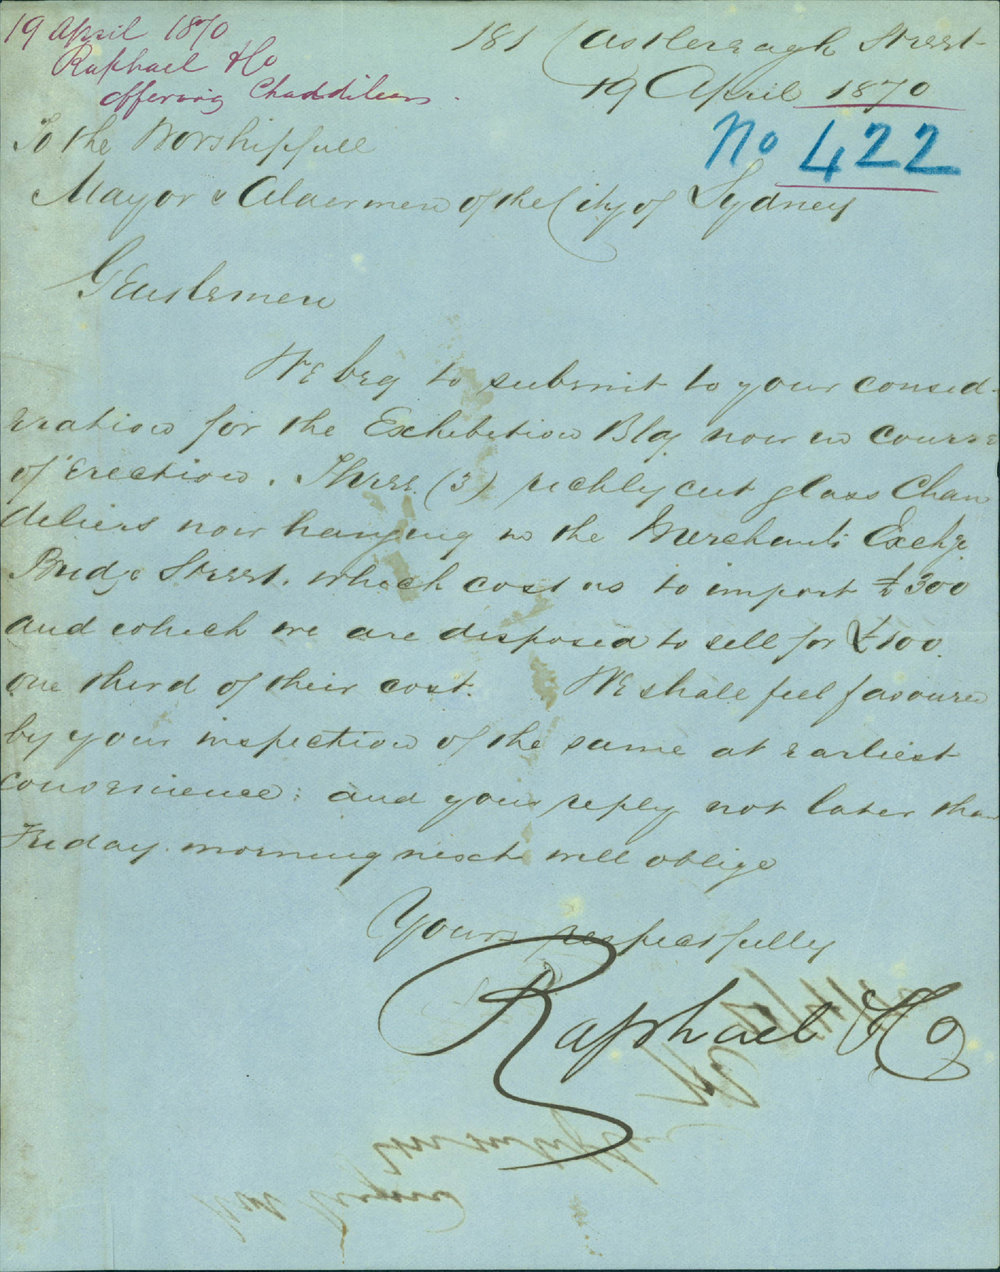 19 April 1870
Raphael & Co
offering Chaddileers.
181 Castlereagh Street
19 April 1870
No 422
To the Worshipfull
Mayor & Aldermen of the City of Sydney
Gentlemen
We beg to submit to your consid-
eration for the Exhibition Bldg now in course
of Erection. Three (3) richly cut glass Chan
deliers now hanging in the Merchants Exchge
Bridge Street. which cost us to import £300
and which we are disposed to sell for £100.
one third of their cost. We shall feel favoured
by your inspection of the same at earliest
convenience: and your reply not later than
Friday. morning next will oblige
Yours respectfully
Raphael & Co